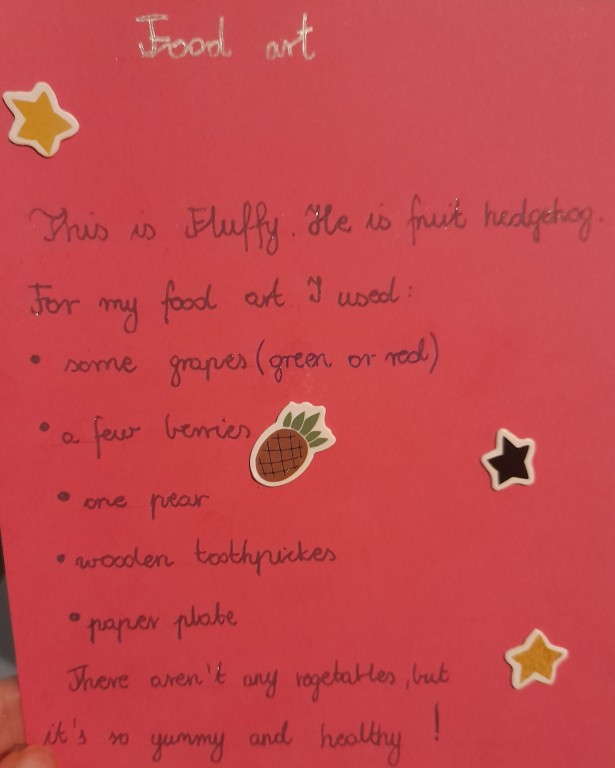 Food art
This is Fluffy. He is fruit hedgehog.
For my food art I used:
• some grapes (green or red)
• a few berries
• one pear
• wooden toothpickes
• paper plate
There aren't any vegetables, but
it's so yummy and healthy!